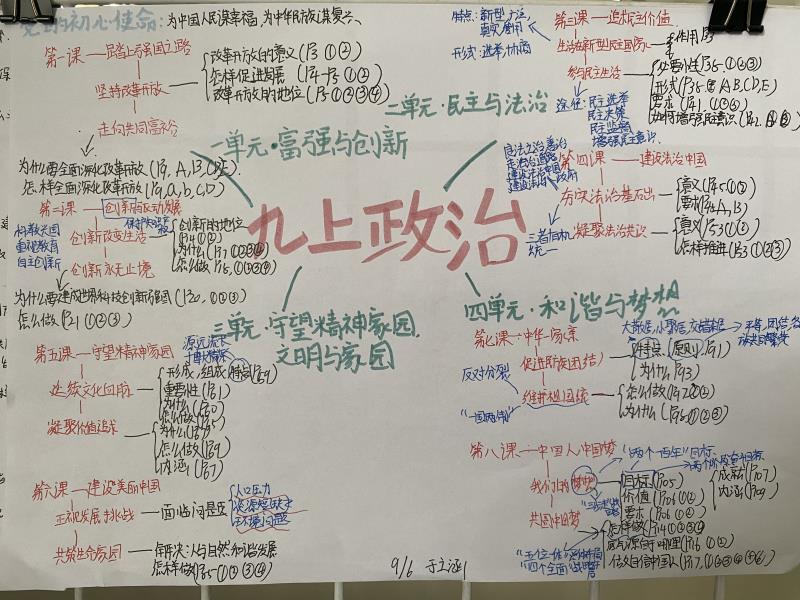 党的初心使命:为中国人民谋幸福,为中华民族谋复兴、
第一课——踏上强国之路
坚持改革开放
改革开放的意义(P3 ①②)
怎样促进发展
改革开放的地位(P5 ①②③④)
走向共同富裕
为什么要全面深化改革开放(P9, A,B,C,D,E)
怎样全面深化改革开放(P9,a,b,c,D)
一单元·富强与创新
第二课——创新驱动发展
科教兴国
重视教育
自主创新
创新改变生活
创新的地位
P14 ①②
为什么(P17 ①②③④)
创新永无止境
为什么要建成世界科技创新强国(P20, ①②③)
怎么做(P21 ①②③)
二单元·民主与法治
特点:新型,广泛,
真实,管用
形式:选举,协商
第三课——追求民主价值
生活在新型民主国家
作用
参与民主生活
形式(P36 A,B,C,D,E)
途径:民主选举
民主决策
民主监督
增强民主意识
第四课——建设法治中国
夯实法治基石
意义(P45 ①②)
凝聚法治共识
意义(P53 ①②)
怎样推进(P53 ①②③)
三者有机
统一
九上政治
三单元·守望精神家园,
文明与家园
源远流长
博大精深
第五课——守望精神家园
延续文化血脉
形成,组成,特点P59
重要性(P61)
为什么(P60)
怎么做(P65)
凝聚价值追求
为什么(P69)
怎么做(P69)
内涵(P67)
第六课——建设美丽中国
正视发展挑战——面临问题
人口压力
资源短缺
环境问题
共筑生命家园
解决:人与自然和谐发展
怎样做(P85 ①②③④)
四单元·和谐与梦想
第七课——中华一家亲
大杂居,小聚居,交错杂居
促进民族团结
特点,原则P91
为什么P93
反对分裂
维护祖国统一
怎么做(P97 ①②)
为什么(P98 ①②③)
“一国两制”
第八课——中国人中国梦
“两个一百年”目标
我们的梦想
目标(P105)
价值(P106 ①②)
要求(P106 ①②)
成就(P107)
内涵(P109)
共圆中国梦
怎样做(P114 ①②③④)
做自信中国人(P117, ①②③④⑤⑥)
“五位一体”总体布局
“四个全面”战略
9/6 于立涵